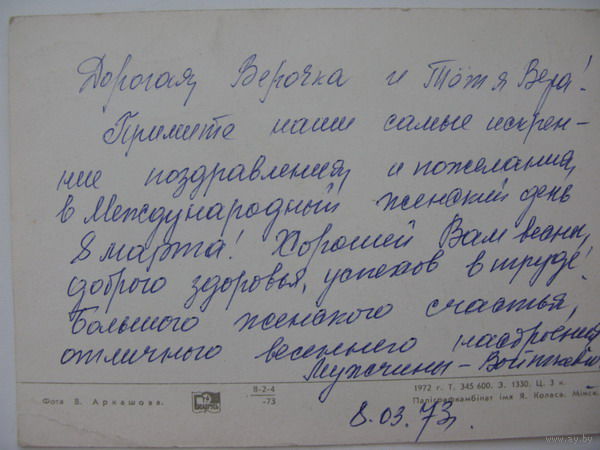 Дорогая Верочка и Тётя Вера!
Примите наши самые искрен-
ние поздравления и пожелания
в Международный женский день
8 марта! Хорошей Вам весны,
доброго здоровья, успехов в труде!
Большого женского счастья,
отличного весеннего настроения
Мужчины —
8.03.73.
Фота В. Аркашова.
БЕЛАРУСЬ
В-2-4
-73
1972 г. Т. 345 600. З. 1330. Ц. 3 к.
Паліграфкамбінат імя Я. Коласа. Мінск
www.ay.by